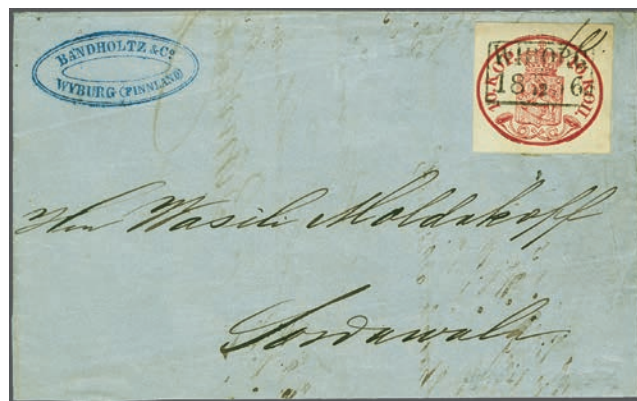 BANDHOLTZ & Co
WYBURG (FINNLAND)
WIBORG
18 62
Herr Wasili Moldakoff
Sordawala